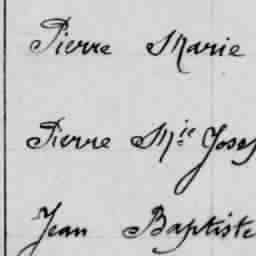 Pierre Marie
Pierre M.ie Josep
Jean Baptiste